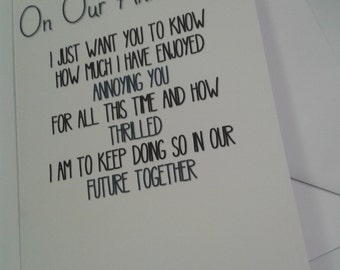 On Our
I JUST WANT YOU TO KNOW
HOW MUCH I HAVE ENJOYED
ANNOYING YOU
FOR ALL THIS TIME AND HOW
THRILLED
I AM TO KEEP DOING SO IN OUR
FUTURE TOGETHER